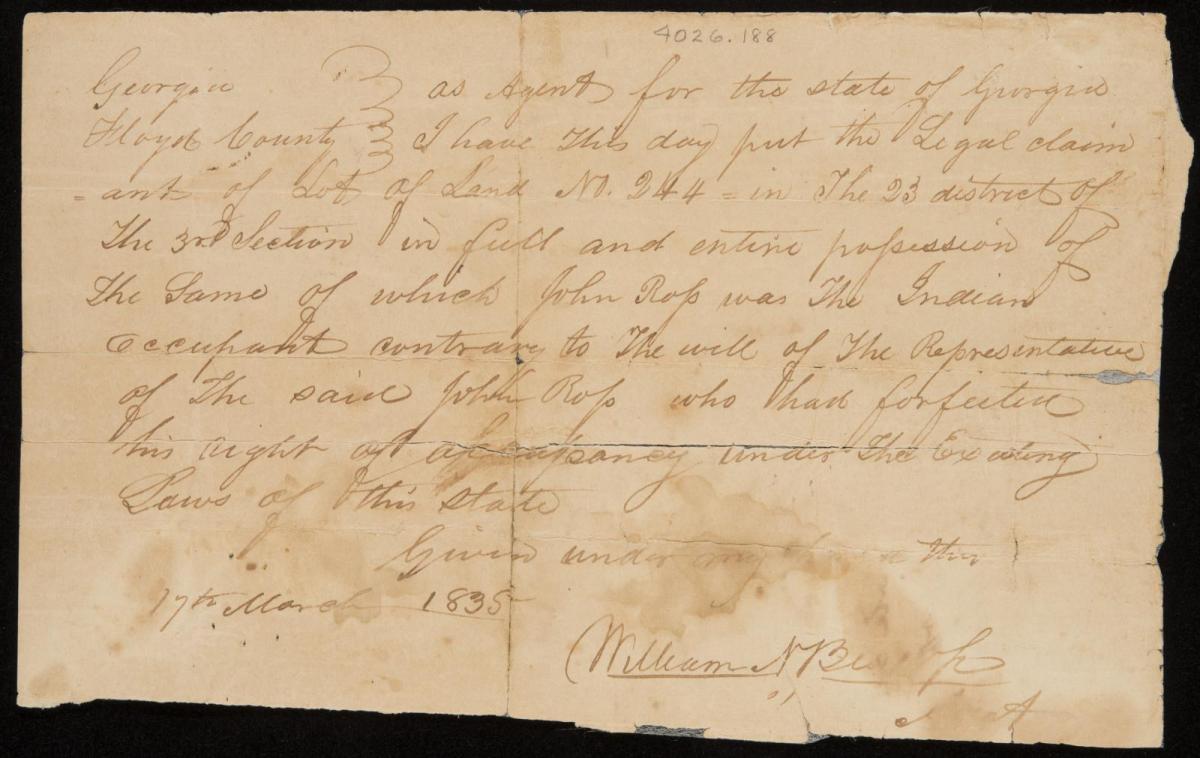 4026.188
Georgia as Agent for the state of Georgia
Floyd County I have this day put the Legal claim
=ant of Lot of Land No. 244 = in The 23 district of
The 3rd Section in full and entire possession of
the Same of which John Ross was The Indian
occupant contrary to The will of The Representative
of The said John Ross who had forfeited
his right of occupancy under The Existing
Laws of this state
Given under my this
17th March 1835
William N
A